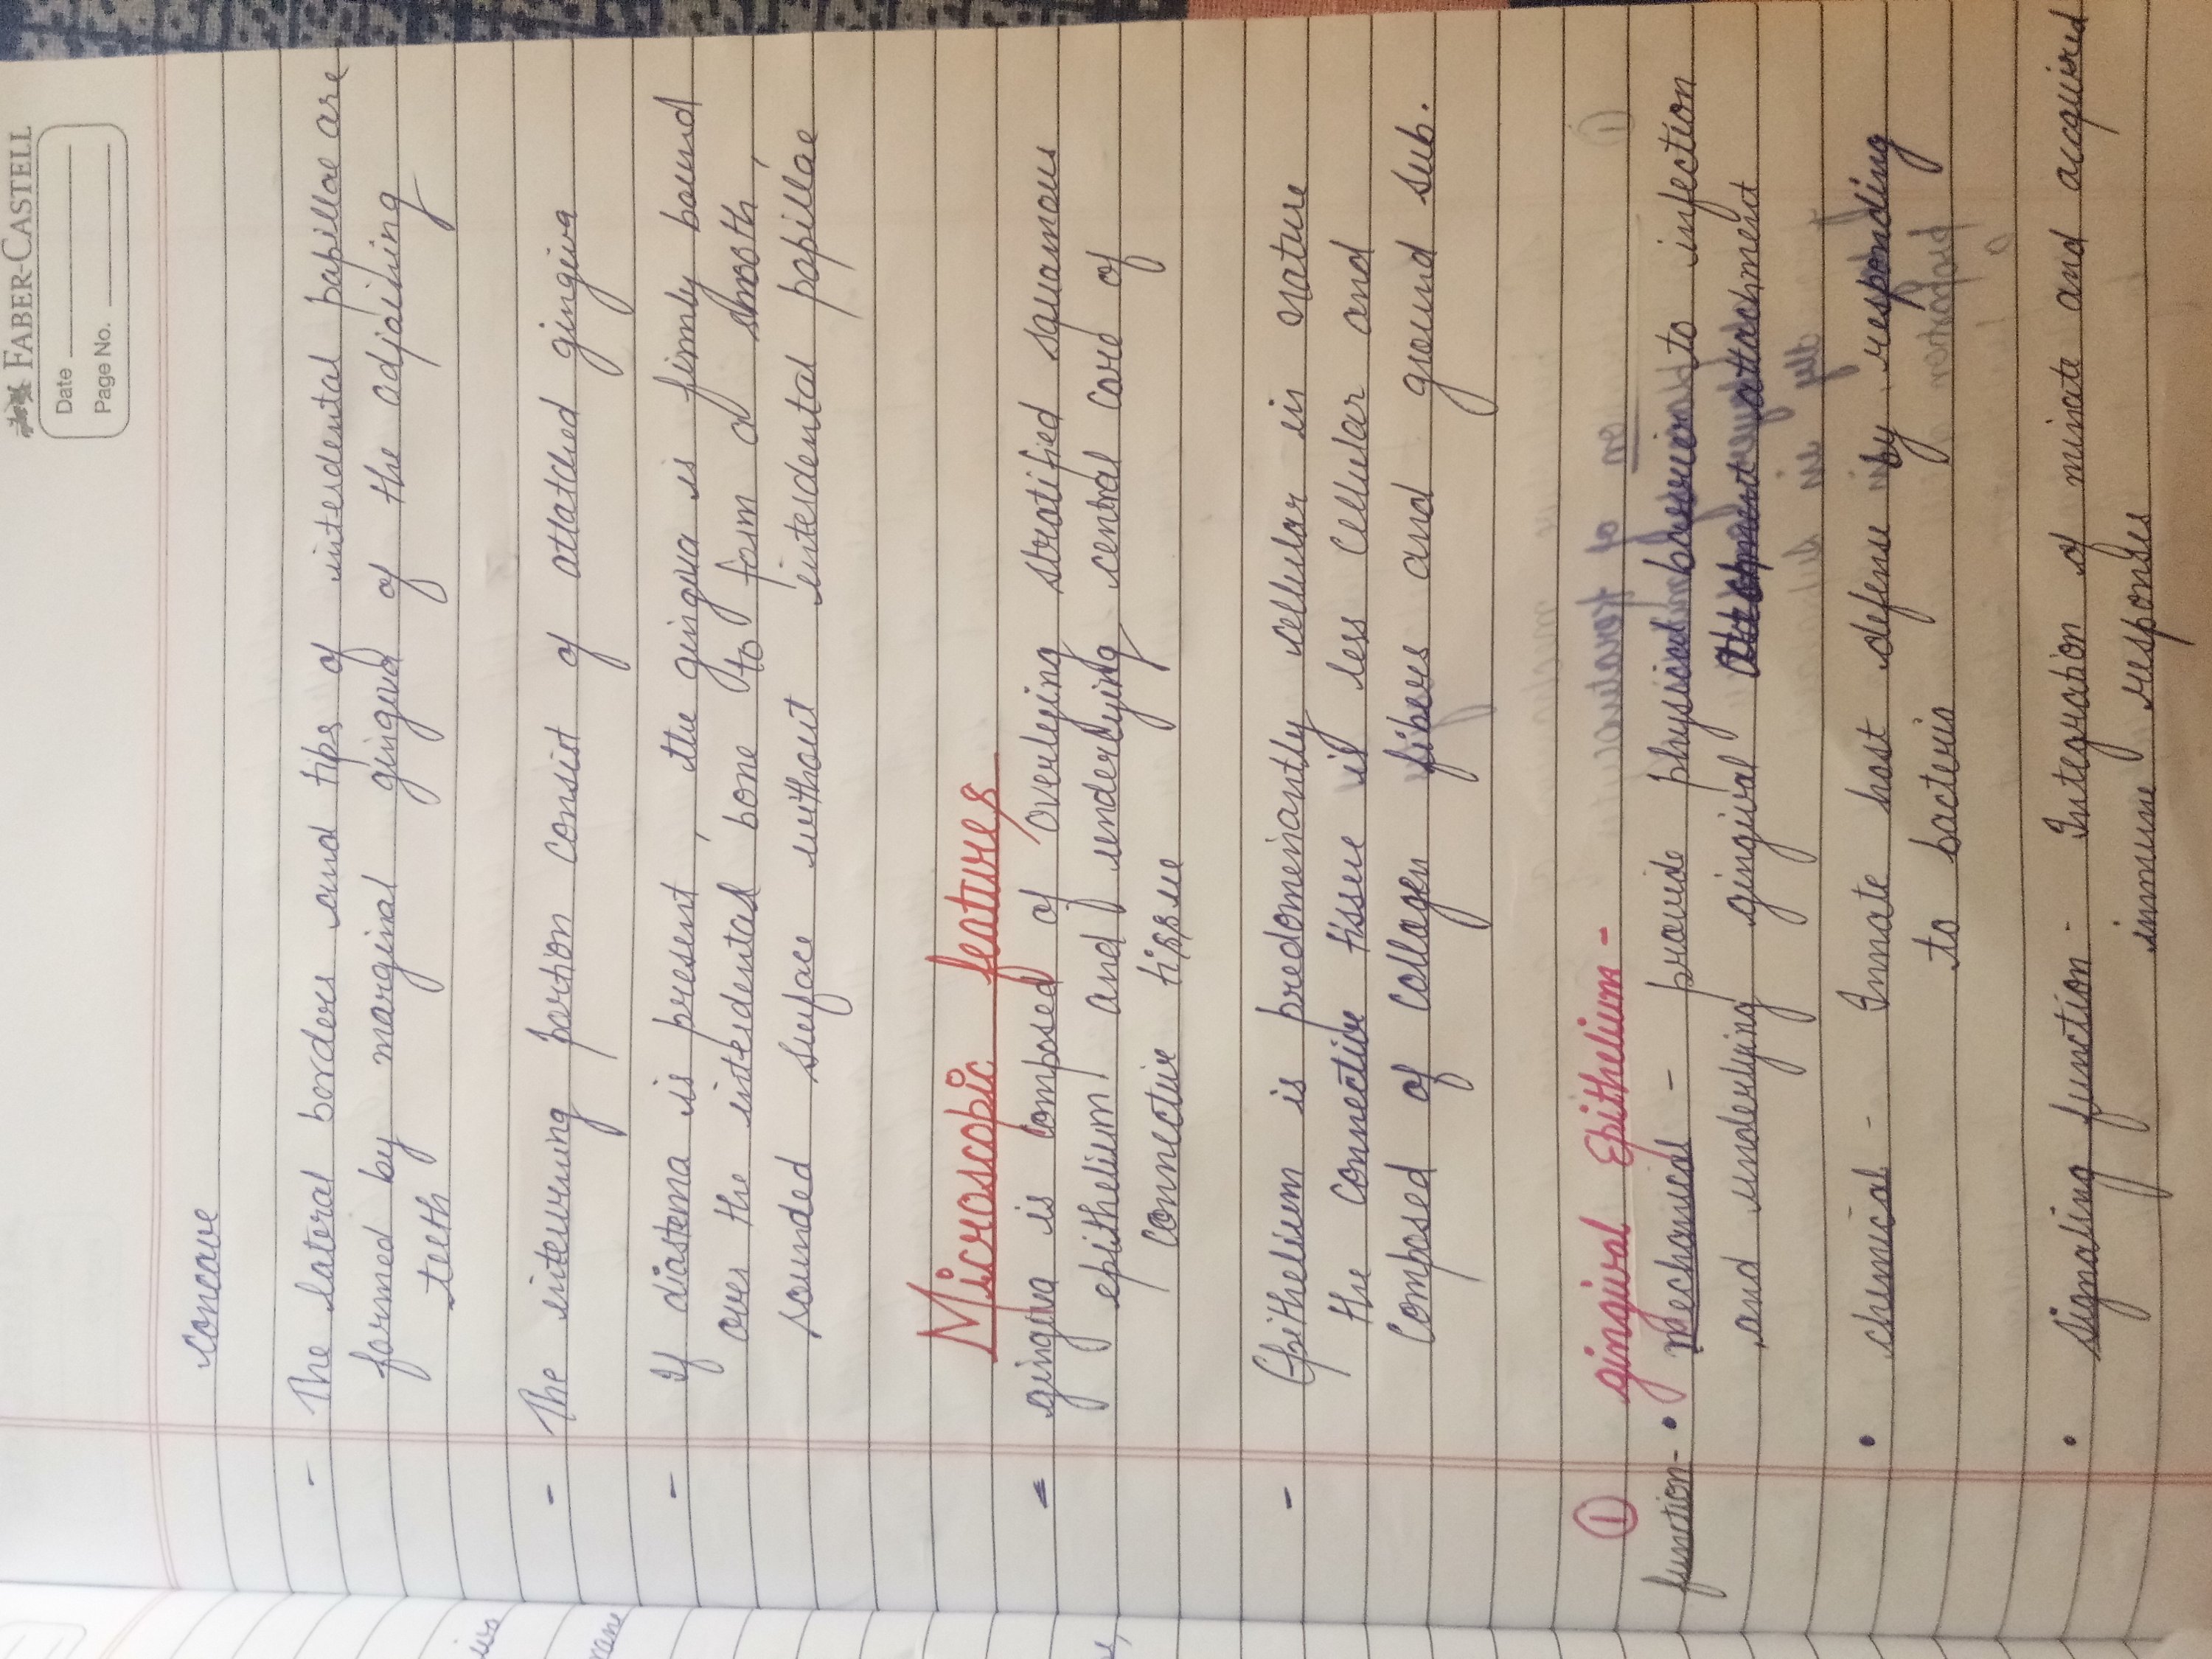 FABER-CASTELL
Date
Page No.
concave
- The lateral borders and tips of interdental papillae are
formed by marginal gingiva of the adjoining
teeth
- The intervening portion consist of attatched gingiva
- If diastema is present, the gingiva is firmly bound
over the interdental bone to form a smooth,
sounded surface without interdental papillae
Microscopic features
= gingiva is composed of overlying stratified squamous
epithelium and underlying central core of
connective tissue
- Epithelium is predomenantly cellular in nature
the connective tissue is less cellular and
composed of collagen fibers and ground sub.
① gingival Epithelium -
function - • mechanical - provide physical barrier to infection
and underlying gingival attachment
• chemical - Innate host defense by responding
to bacteria
• signaling function - Integration of innate and accquired
immune responses